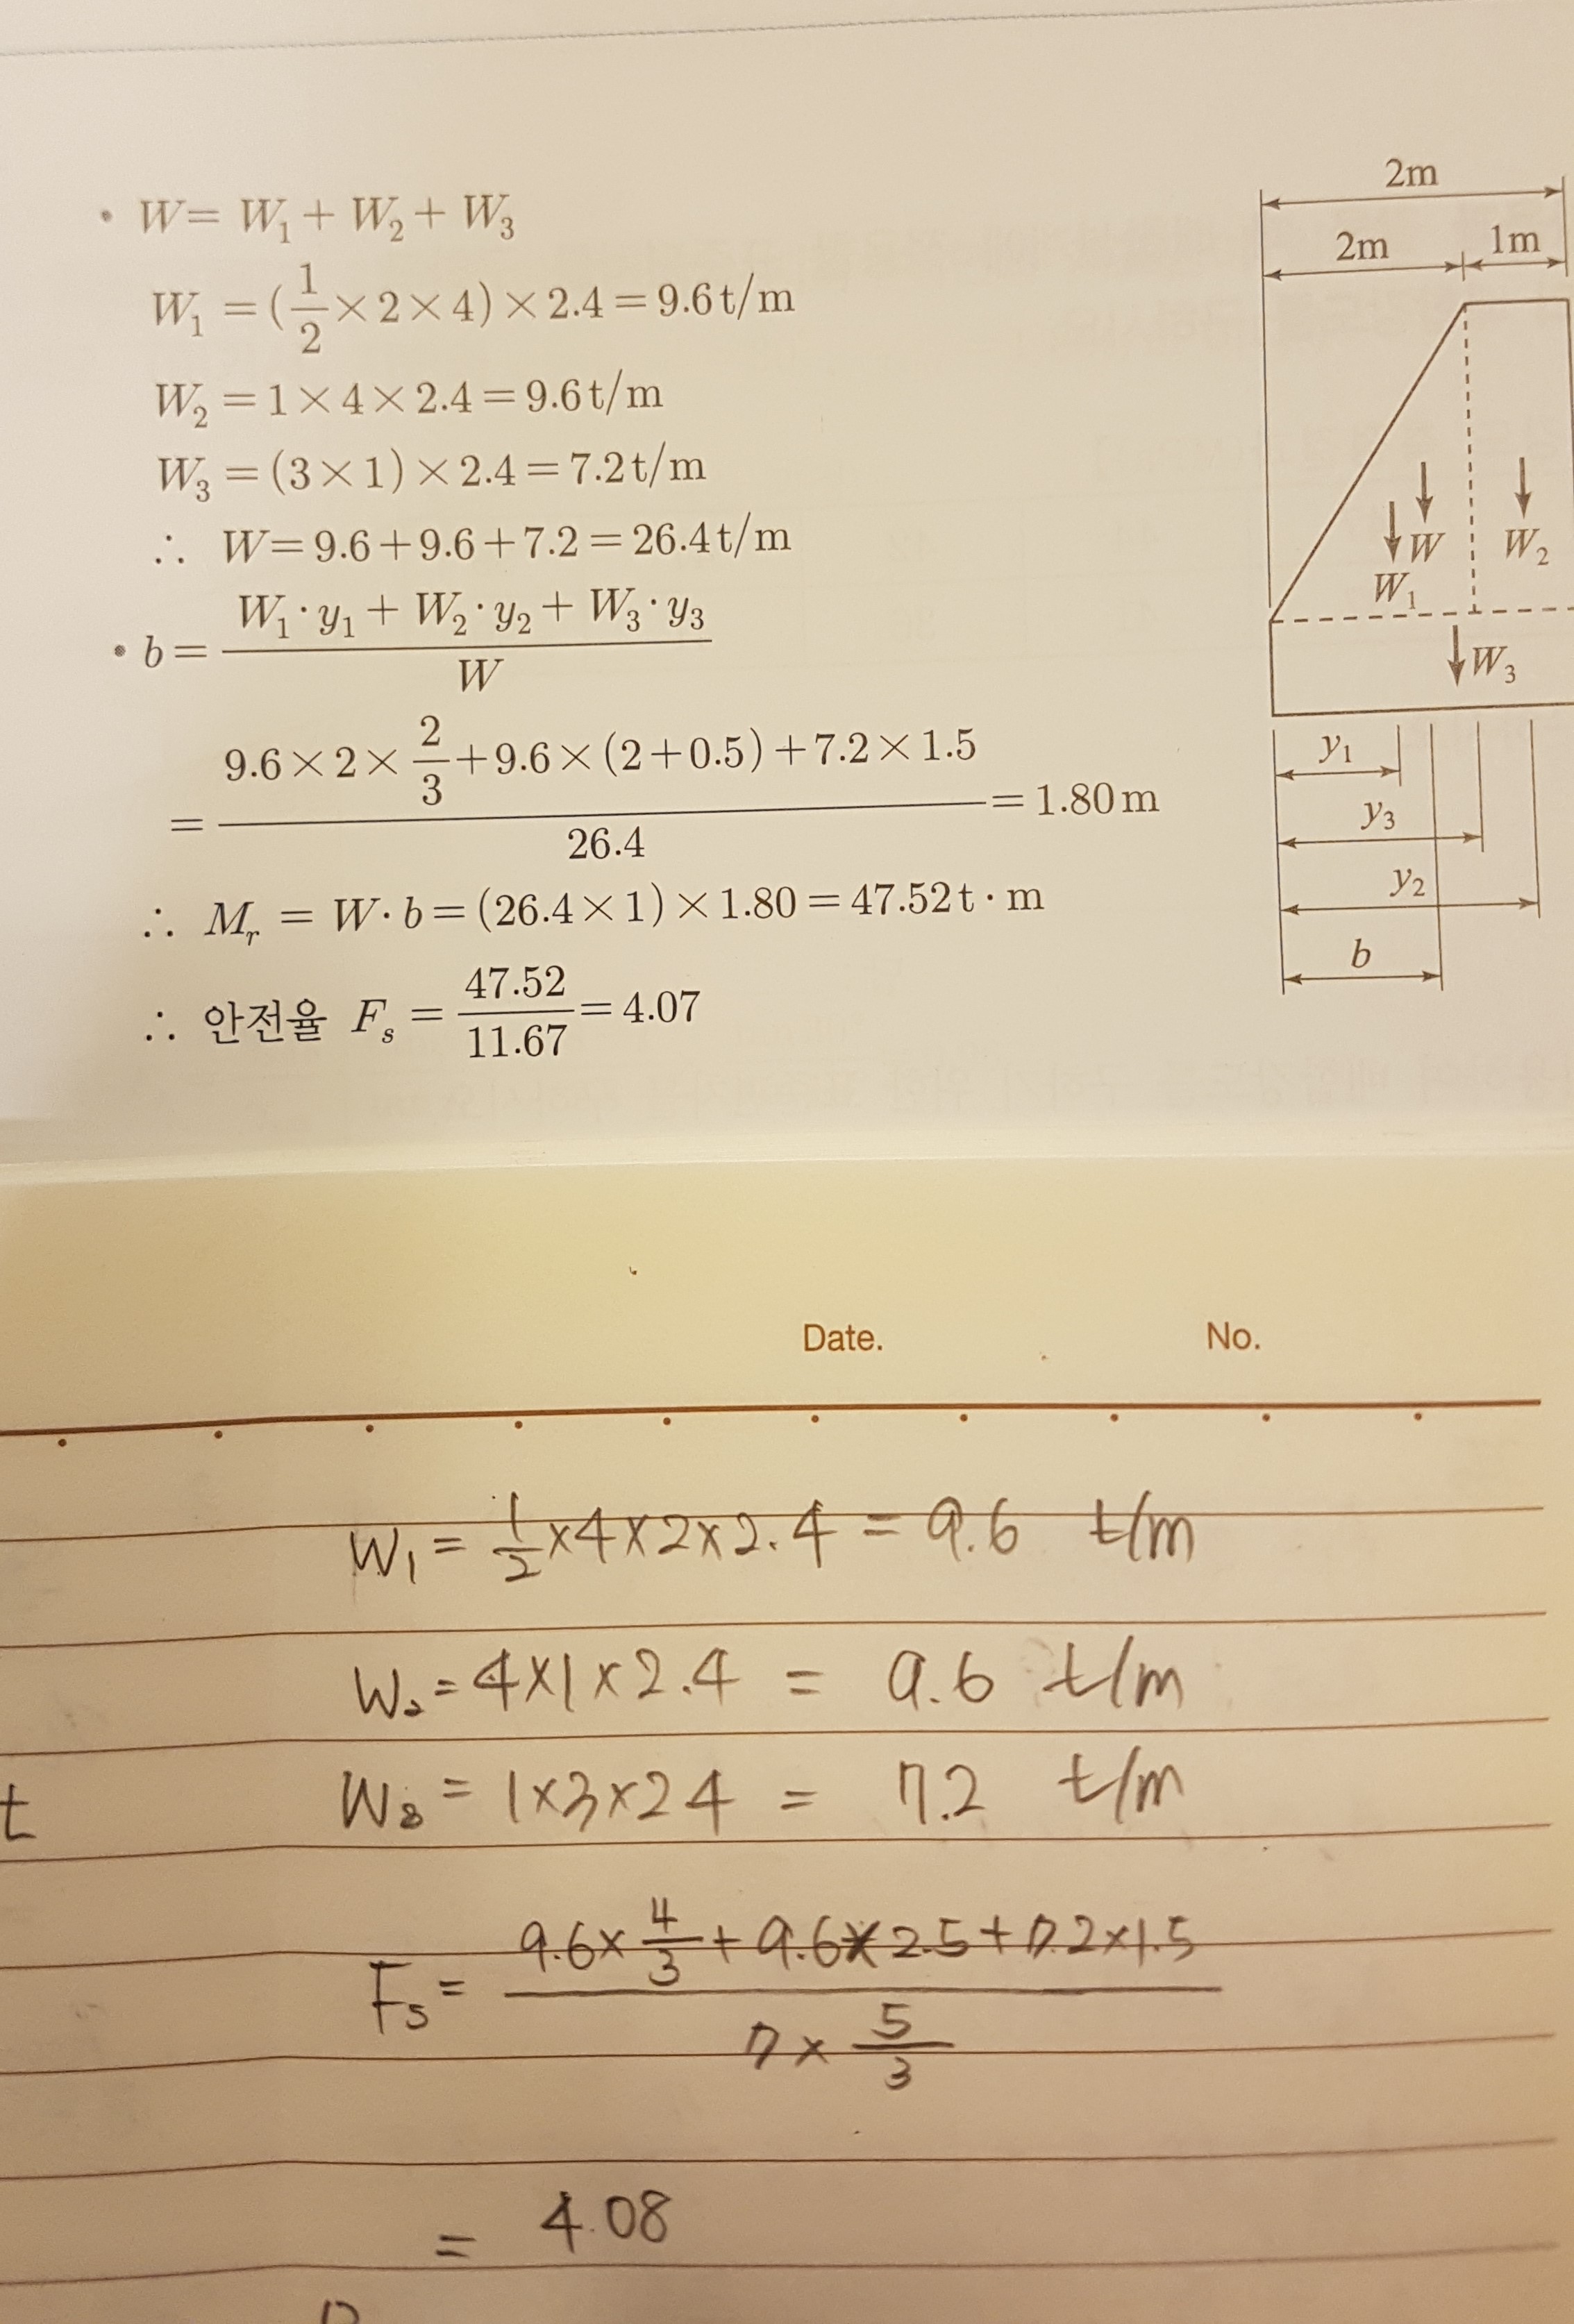 • W = W₁ + W₂ + W₃
W₁ = (1/2 × 2 × 4) × 2.4 = 9.6 t/m
W₂ = 1 × 4 × 2.4 = 9.6 t/m
W₃ = (3 × 1) × 2.4 = 7.2 t/m
∴ W = 9.6 + 9.6 + 7.2 = 26.4 t/m
• b = (W₁·y₁ + W₂·y₂ + W₃·y₃) / W
= (9.6 × 2 × 2/3 + 9.6 × (2 + 0.5) + 7.2 × 1.5) / 26.4 = 1.80 m
∴ Mᵣ = W·b = (26.4 × 1) × 1.80 = 47.52 t·m
∴ 안전율 Fₛ = 47.52 / 11.67 = 4.07
2m
2m 1m
W W₂
W₁
W₃
y₁
y₃
y₂
b
Date. No.
W₁ = 1/2 × 4 × 2 × 2.4 = 9.6 t/m
W₂ = 4 × 1 × 2.4 = 9.6 t/m
t W₃ = 1 × 3 × 2.4 = 7.2 t/m
Fs = (9.6 × 4/3 + 9.6 × 2.5 + 7.2 × 1.5) / (7 × 5/3)
= 4.08